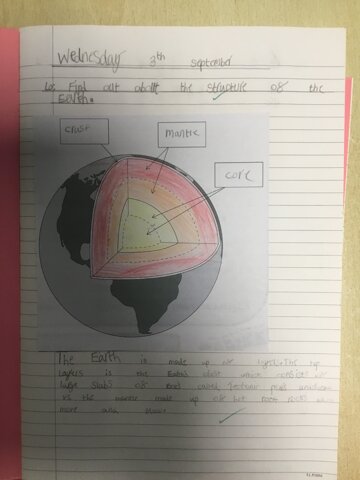 Wednesday 3th september
Lo: Find out about the structure of the
Earth.
crust
mantle
core
The Earth is made up of layers. The top
layers is the Earths crust which consists of
large slabs of called plates
vs the mantle made up of hot rock
more and